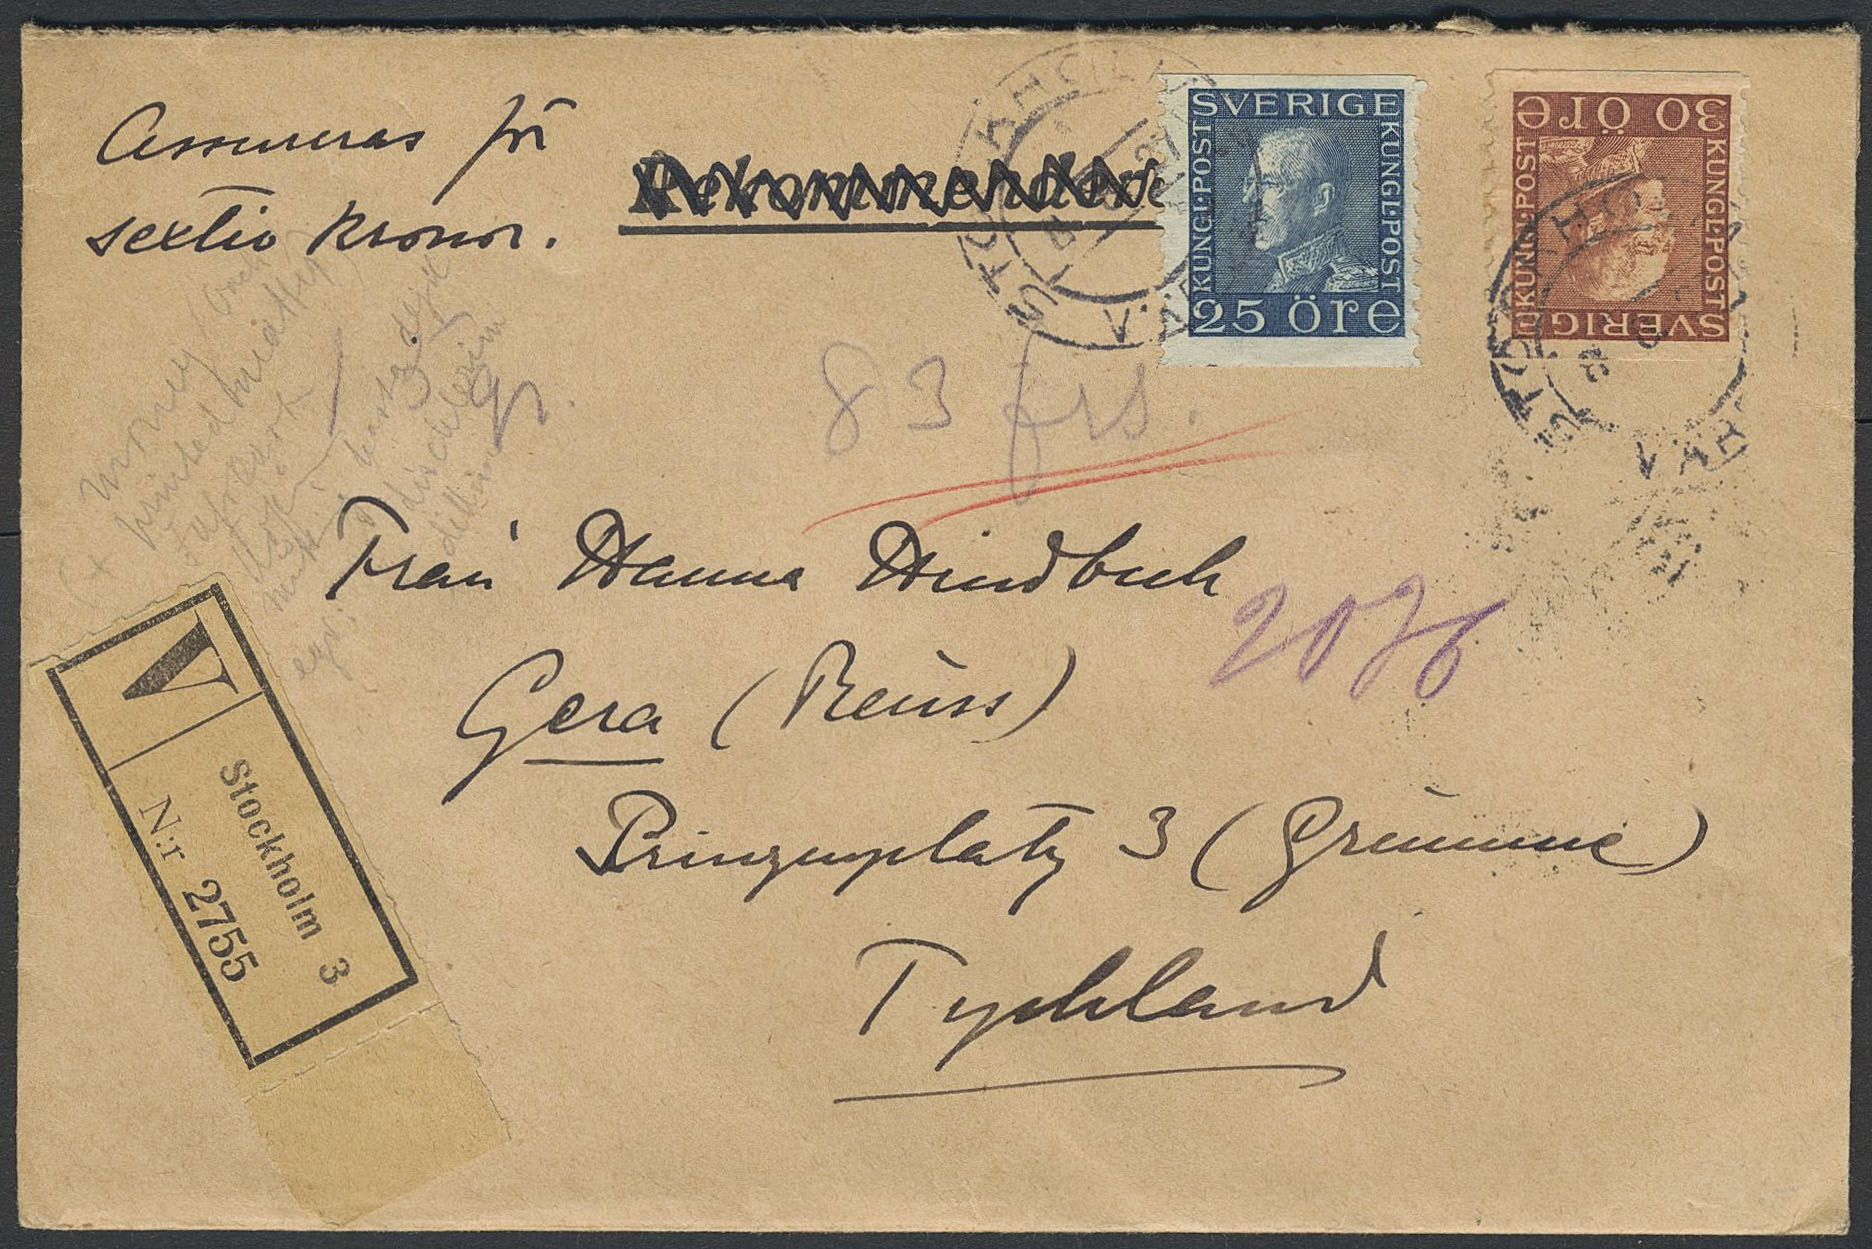 Assureras för
sextio kronor.
Rekommenderas
STOCKHOLM
SVERIGE
KUNGL·POST
KUNGL·POST
25 öre
30 öre
KUNGL·POST
KUNGL·POST
SVERIGE
STOCKHOLM
83 frs.
gr.
money
printed
Frau Hanna Hindbuch
2076
Gera (Reuss)
Prinzenplatz 3 (Grimme)
Tyskland
V
Stockholm 3
N:r 2755